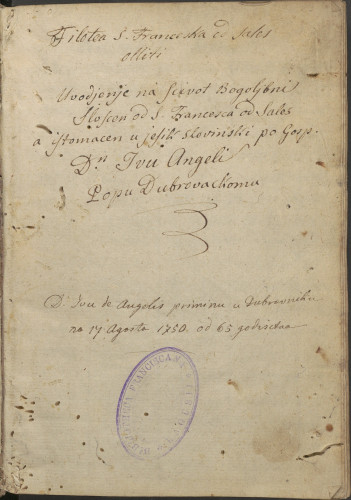 Filotea S. Franceska od Sales
olliti
Uvodjenje na scivot Bogoljbni
Sloscon od S. Francesca od Sales
a istomacen u jesik slovinski po Gosp.
Dn Ivu Angeli
Popu Dubrovackomu
Dn Ivu de Angelis priminu u Dubrovniku
na 17 Agosta 1750. od 65 godiscta